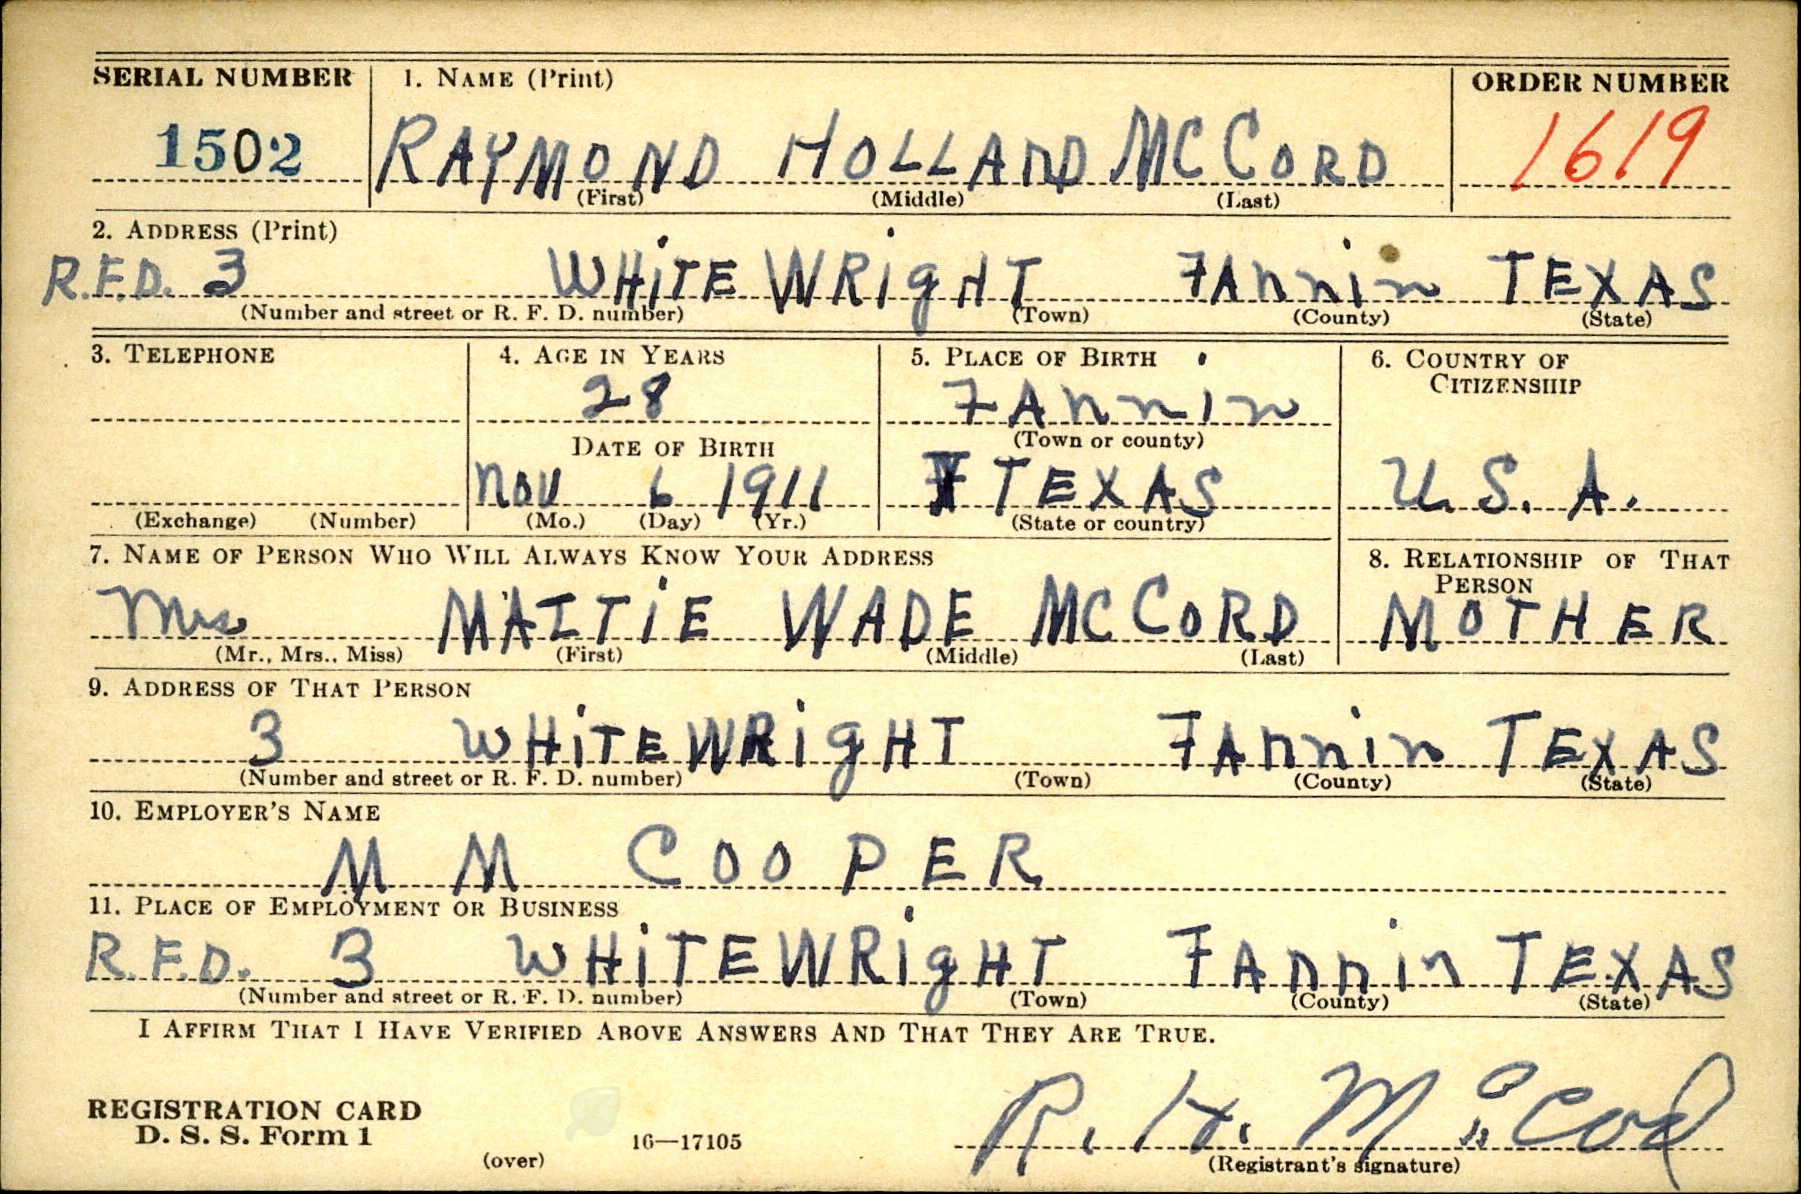 SERIAL NUMBER 1. NAME (Print) ORDER NUMBER
1502 RAYMOND HOLLAND MCCORD 1619
(First) (Middle) (Last)
2. ADDRESS (Print)
R.F.D. 3 WHITEWRigHT FAnnin TEXAS
(Number and street or R. F. D. number) (Town) (County) (State)
3. TELEPHONE 4. AGE IN YEARS 5. PLACE OF BIRTH 6. COUNTRY OF CITIZENSHIP
28 FAnnin
DATE OF BIRTH (Town or county)
Nov 6 1911 TEXAS U. S. A.
(Exchange) (Number) (Mo.) (Day) (Yr.) (State or country)
7. NAME OF PERSON WHO WILL ALWAYS KNOW YOUR ADDRESS 8. RELATIONSHIP OF THAT PERSON
Mrs MATTiE WADE MCCORD MOTHER
(Mr., Mrs., Miss) (First) (Middle) (Last)
9. ADDRESS OF THAT PERSON
3 WHiTEWRigHT FAnnin TEXAS
(Number and street or R. F. D. number) (Town) (County) (State)
10. EMPLOYER'S NAME
M M COOPER
11. PLACE OF EMPLOYMENT OR BUSINESS
R.F.D. 3 WHiTEWRigHT FAnnin TEXAS
(Number and street or R. F. D. number) (Town) (County) (State)
I AFFIRM THAT I HAVE VERIFIED ABOVE ANSWERS AND THAT THEY ARE TRUE.
REGISTRATION CARD R. H. McCord
D. S. S. Form 1 16—17105
(over) (Registrant's signature)